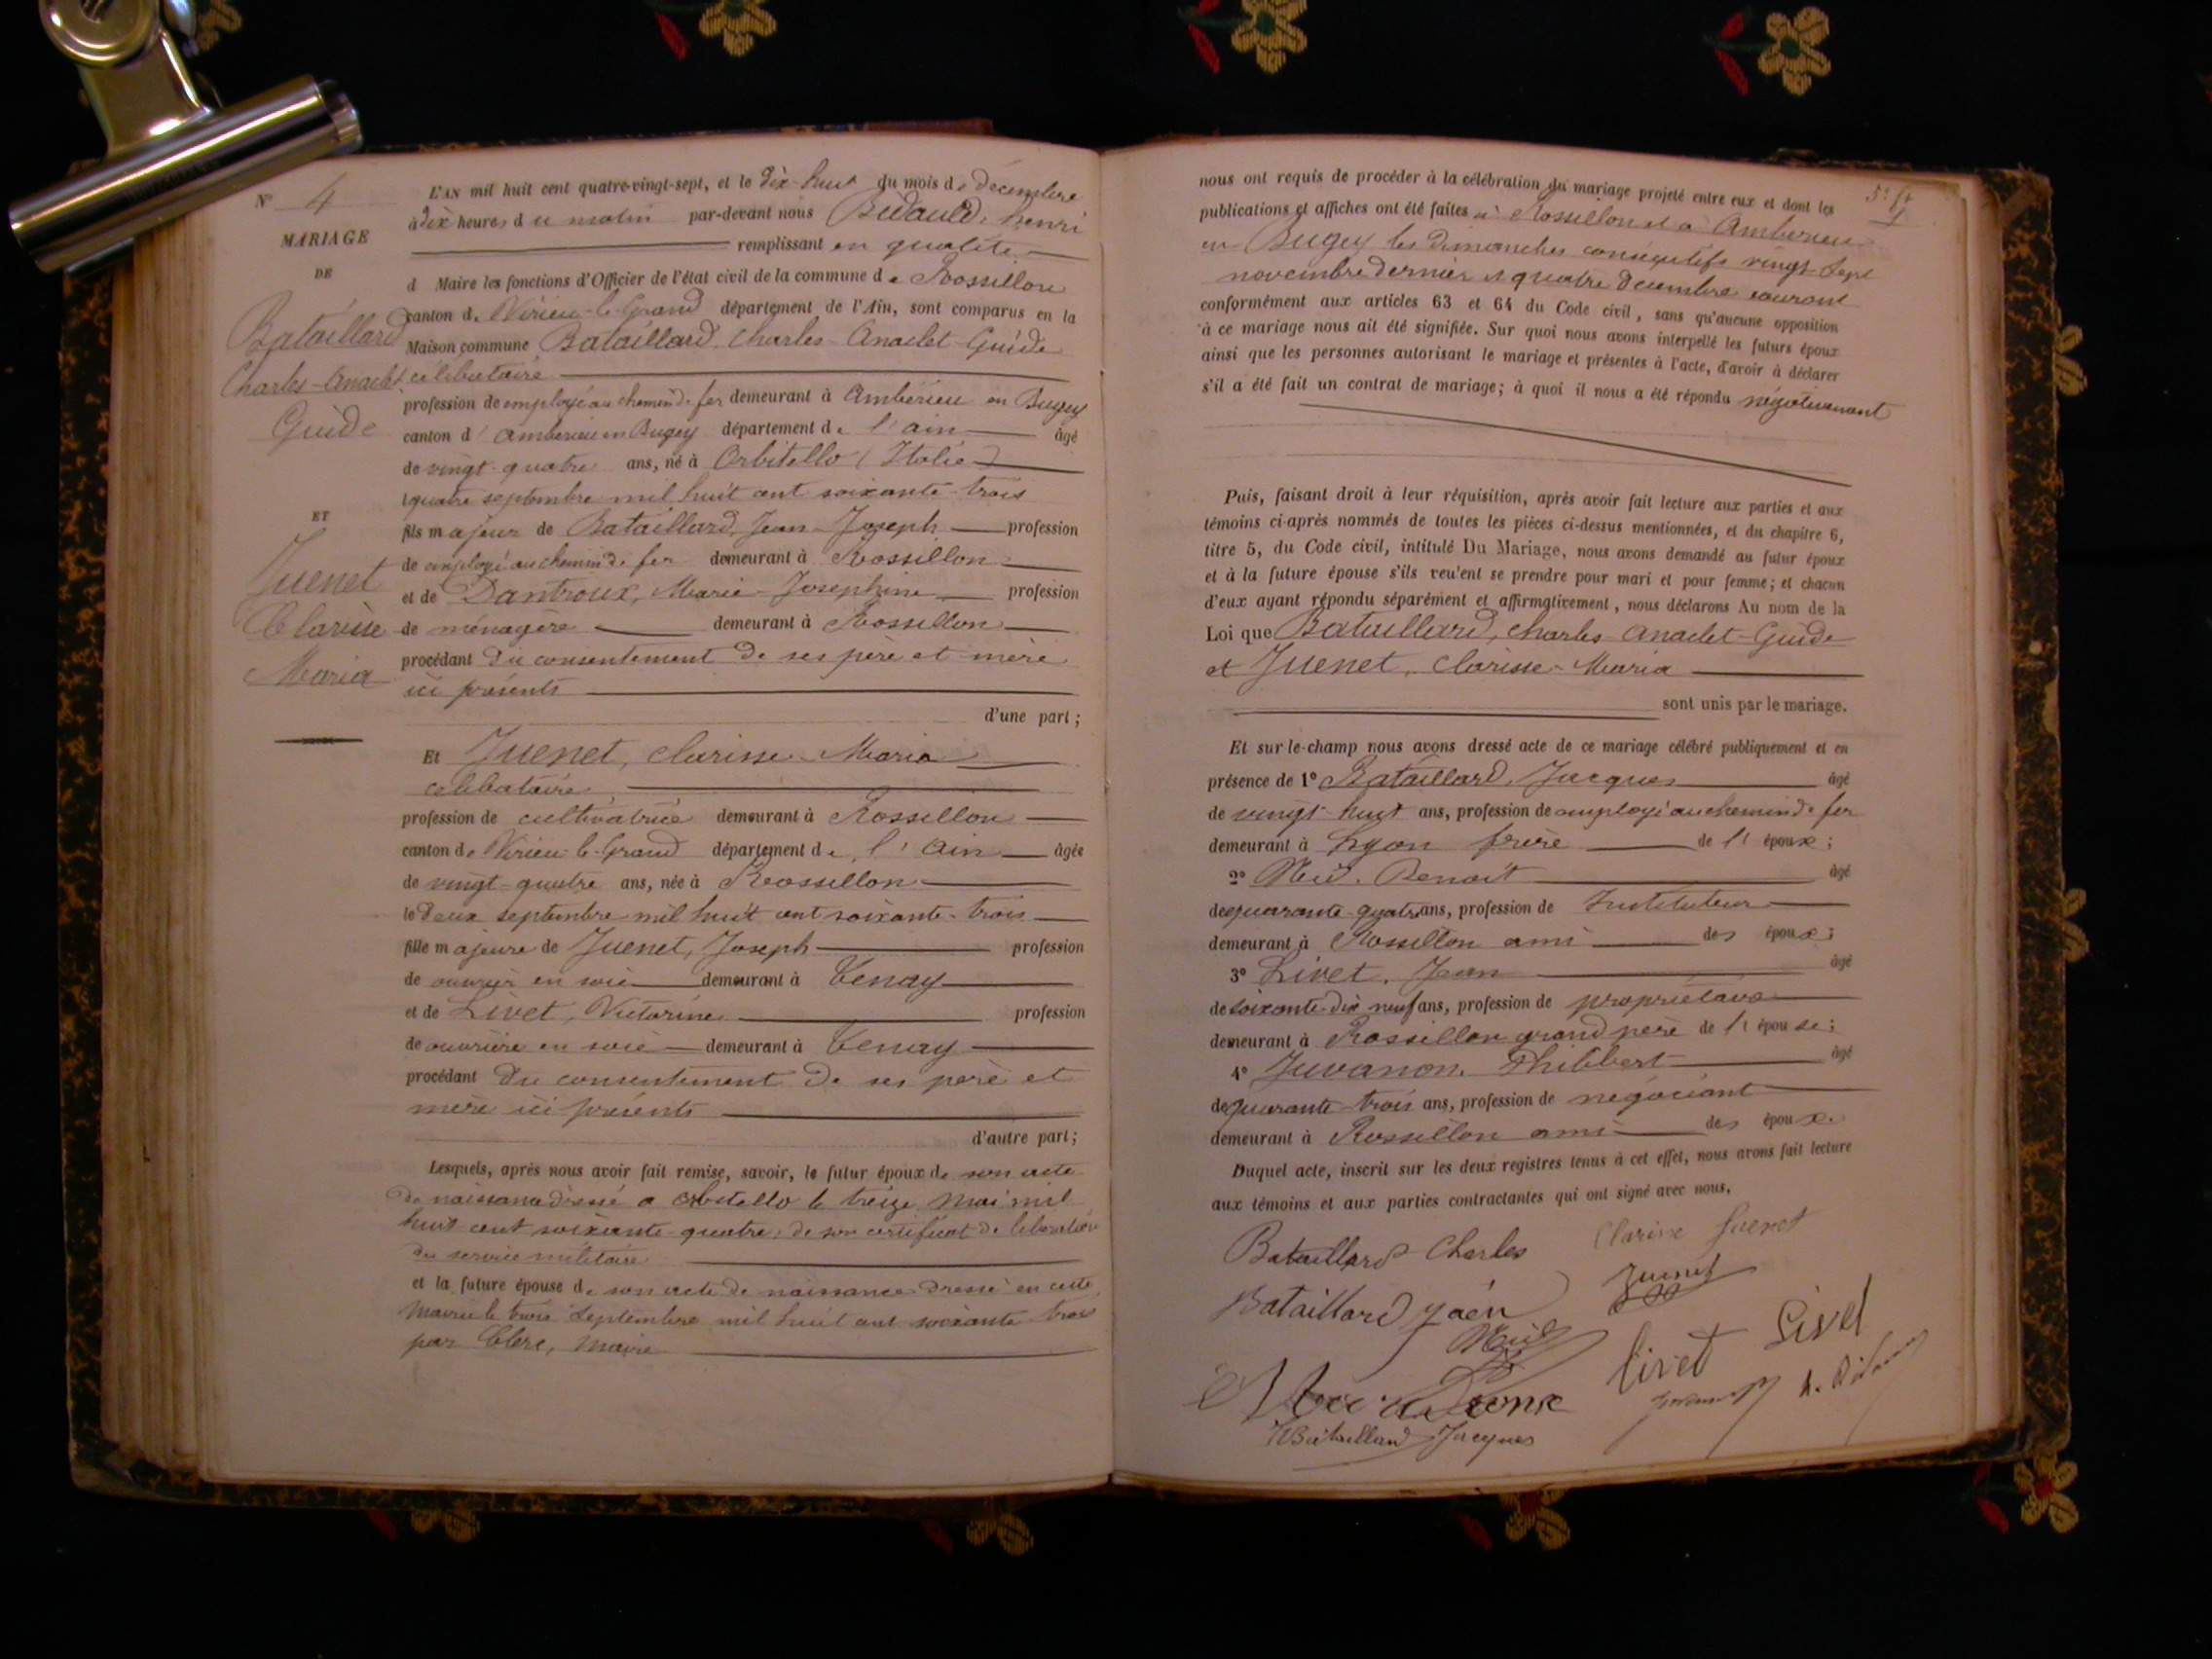 N° 4
MARIAGE
DE
Bataillard
Charles-Anaclet
Guide
ET
Juenet
Clarisse
Maria
L'AN mil huit cent quatre-vingt-sept, et le dix-huit du mois de décembre
à dix heures du matin par-devant nous Bidauld, henri
remplissant en qualité
d Maire les fonctions d'Officier de l'état civil de la commune de Rossillon
canton de Virieu-le-Grand département de l'Ain, sont comparus en la
Maison commune Bataillard, Charles-Anaclet-Guide
célibataire
profession de employé au chemin de fer demeurant à Ambérieu en Bugey
canton d'Ambérieu en Bugey département de l'ain âgé
de vingt-quatre ans, né à Orbitello (Italie)
quatre septembre mil huit cent soixante-trois
fils majeur de Bataillard, Jean-Joseph profession
de employé au chemin de fer demeurant à Rossillon
et de Dantroux, Marie-Josephine profession
de ménagère demeurant à Rossillon
procédant du consentement de ses père et mère
ici présents
d'une part;
Et Juenet, Clarisse-Maria
célibataire
profession de cultivatrice demeurant à Rossillon
canton de Virieu-le-Grand département de l'Ain âgée
de vingt-quatre ans, née à Rossillon
le deux septembre mil huit cent soixante-trois
fille majeure de Juenet, Joseph profession
de ouvrier en soie demeurant à Tenay
et de Livet, Victorine profession
de ouvrière en soie demeurant à Tenay
procédant du consentement de ses père et
mère ici présents
d'autre part;
Lesquels, après nous avoir fait remise, savoir, le futur époux de son acte
de naissance dressé à Orbitello le treize Mai mil
huit cent soixante-quatre; de son certificat de libération
du service militaire
et la future épouse de son acte de naissance dressé en cette
Mairie le trois Septembre mil huit cent soixante trois
par Clerc, Maire
nous ont requis de procéder à la célébration du mariage projeté entre eux et dont les
publications et affiches ont été faites à Rossillon et à Ambérieu
en Bugey les dimanches consécutifs vingt-sept
novembre dernier et quatre décembre courant
conformément aux articles 63 et 64 du Code civil, sans qu'aucune opposition
à ce mariage nous ait été signifiée. Sur quoi nous avons interpellé les futurs époux
ainsi que les personnes autorisant le mariage et présentes à l'acte, d'avoir à déclarer
s'il a été fait un contrat de mariage; à quoi il nous a été répondu négativement
Puis, faisant droit à leur réquisition, après avoir fait lecture aux parties et aux
témoins ci-après nommés de toutes les pièces ci-dessus mentionnées, et du chapitre 6,
titre 5, du Code civil, intitulé Du Mariage, nous avons demandé au futur époux
et à la future épouse s'ils veu'ent se prendre pour mari et pour femme; et chacun
d'eux ayant répondu séparément et affirmativement, nous déclarons Au nom de la
Loi que Bataillard, Charles-Anaclet-Guide
et Juenet, Clarisse-Maria
sont unis par le mariage.
Et sur-le-champ nous avons dressé acte de ce mariage célébré publiquement et en
présence de 1° Bataillard, Jacques âgé
de vingt-huit ans, profession de employé au chemin de fer
demeurant à Lyon frère de l'époux;
2° Benoît âgé
de quarante-quatre ans, profession de Instituteur
demeurant à Rossillon ami des époux;
3° Livet, Jean âgé
de soixante-dix neuf ans, profession de propriétaire
demeurant à Rossillon grand père de l'épouse;
4° Juvanon, Philibert âgé
de quarante-trois ans, profession de négociant
demeurant à Rossillon ami des époux.
Duquel acte, inscrit sur les deux registres tenus à cet effet, nous avons fait lecture
aux témoins et aux parties contractantes qui ont signé avec nous.
Bataillard Charles Clarisse Juenet
Bataillard Juenet
Livet Livet
Bataillard Jacques